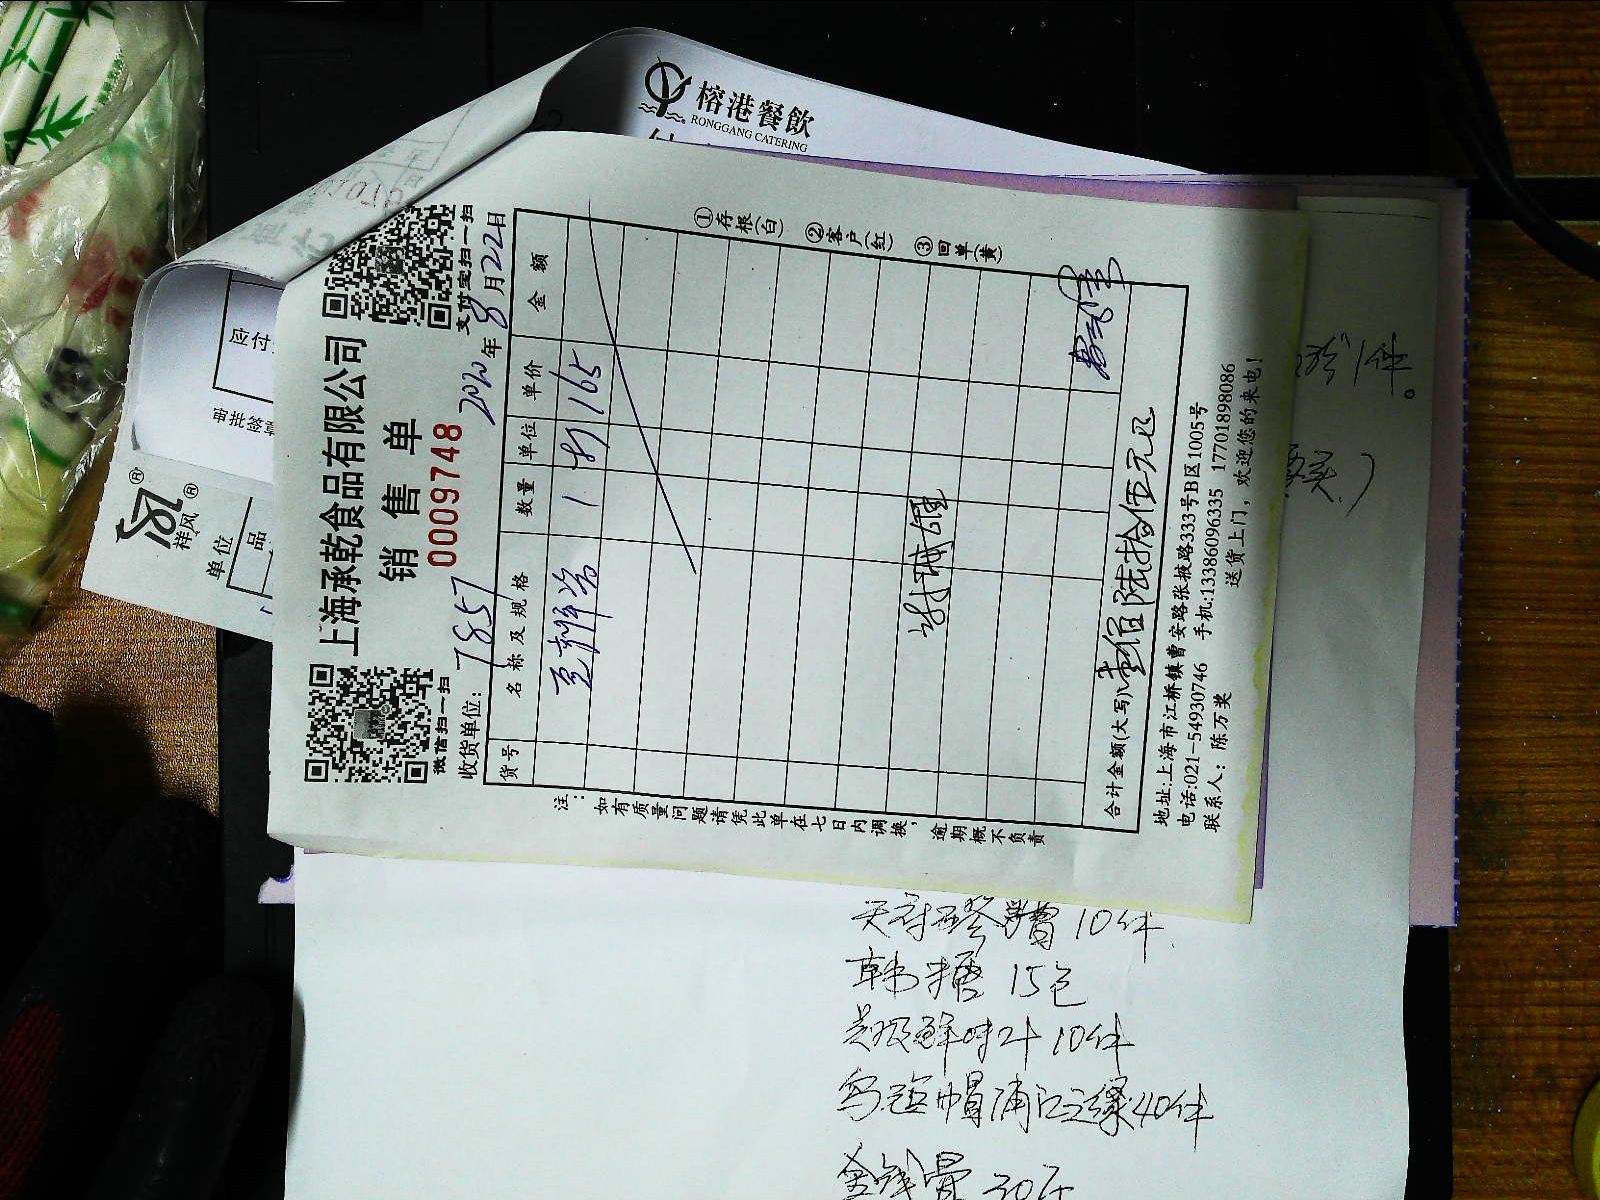 榕港餐飲
RONGGANG CATERING
应付
审批签章
祥风
单位
品
上海承乾食品有限公司
销售单
0009748
微信扫一扫
支付宝扫一扫
收货单位: 7857
2020年8月22日
货号 名称及规格 数量 单位 单价 金额
1 165
合计金额(大写) 壹佰陆拾伍元正
地址:上海市江桥镇曹安路张掖路333号B区1005号
电话:021-54930746 手机:13386096335 17701898086
联系人: 陈万奖 送货上门，欢迎您的来电!
注: 如有质量问题请凭此单在七日内调换，逾期概不负责
①存根(白) ②客户(红) ③回单(黄)
10件
韩糖 15包
鲜味汁 10件
乌毡帽浦江之缘40件